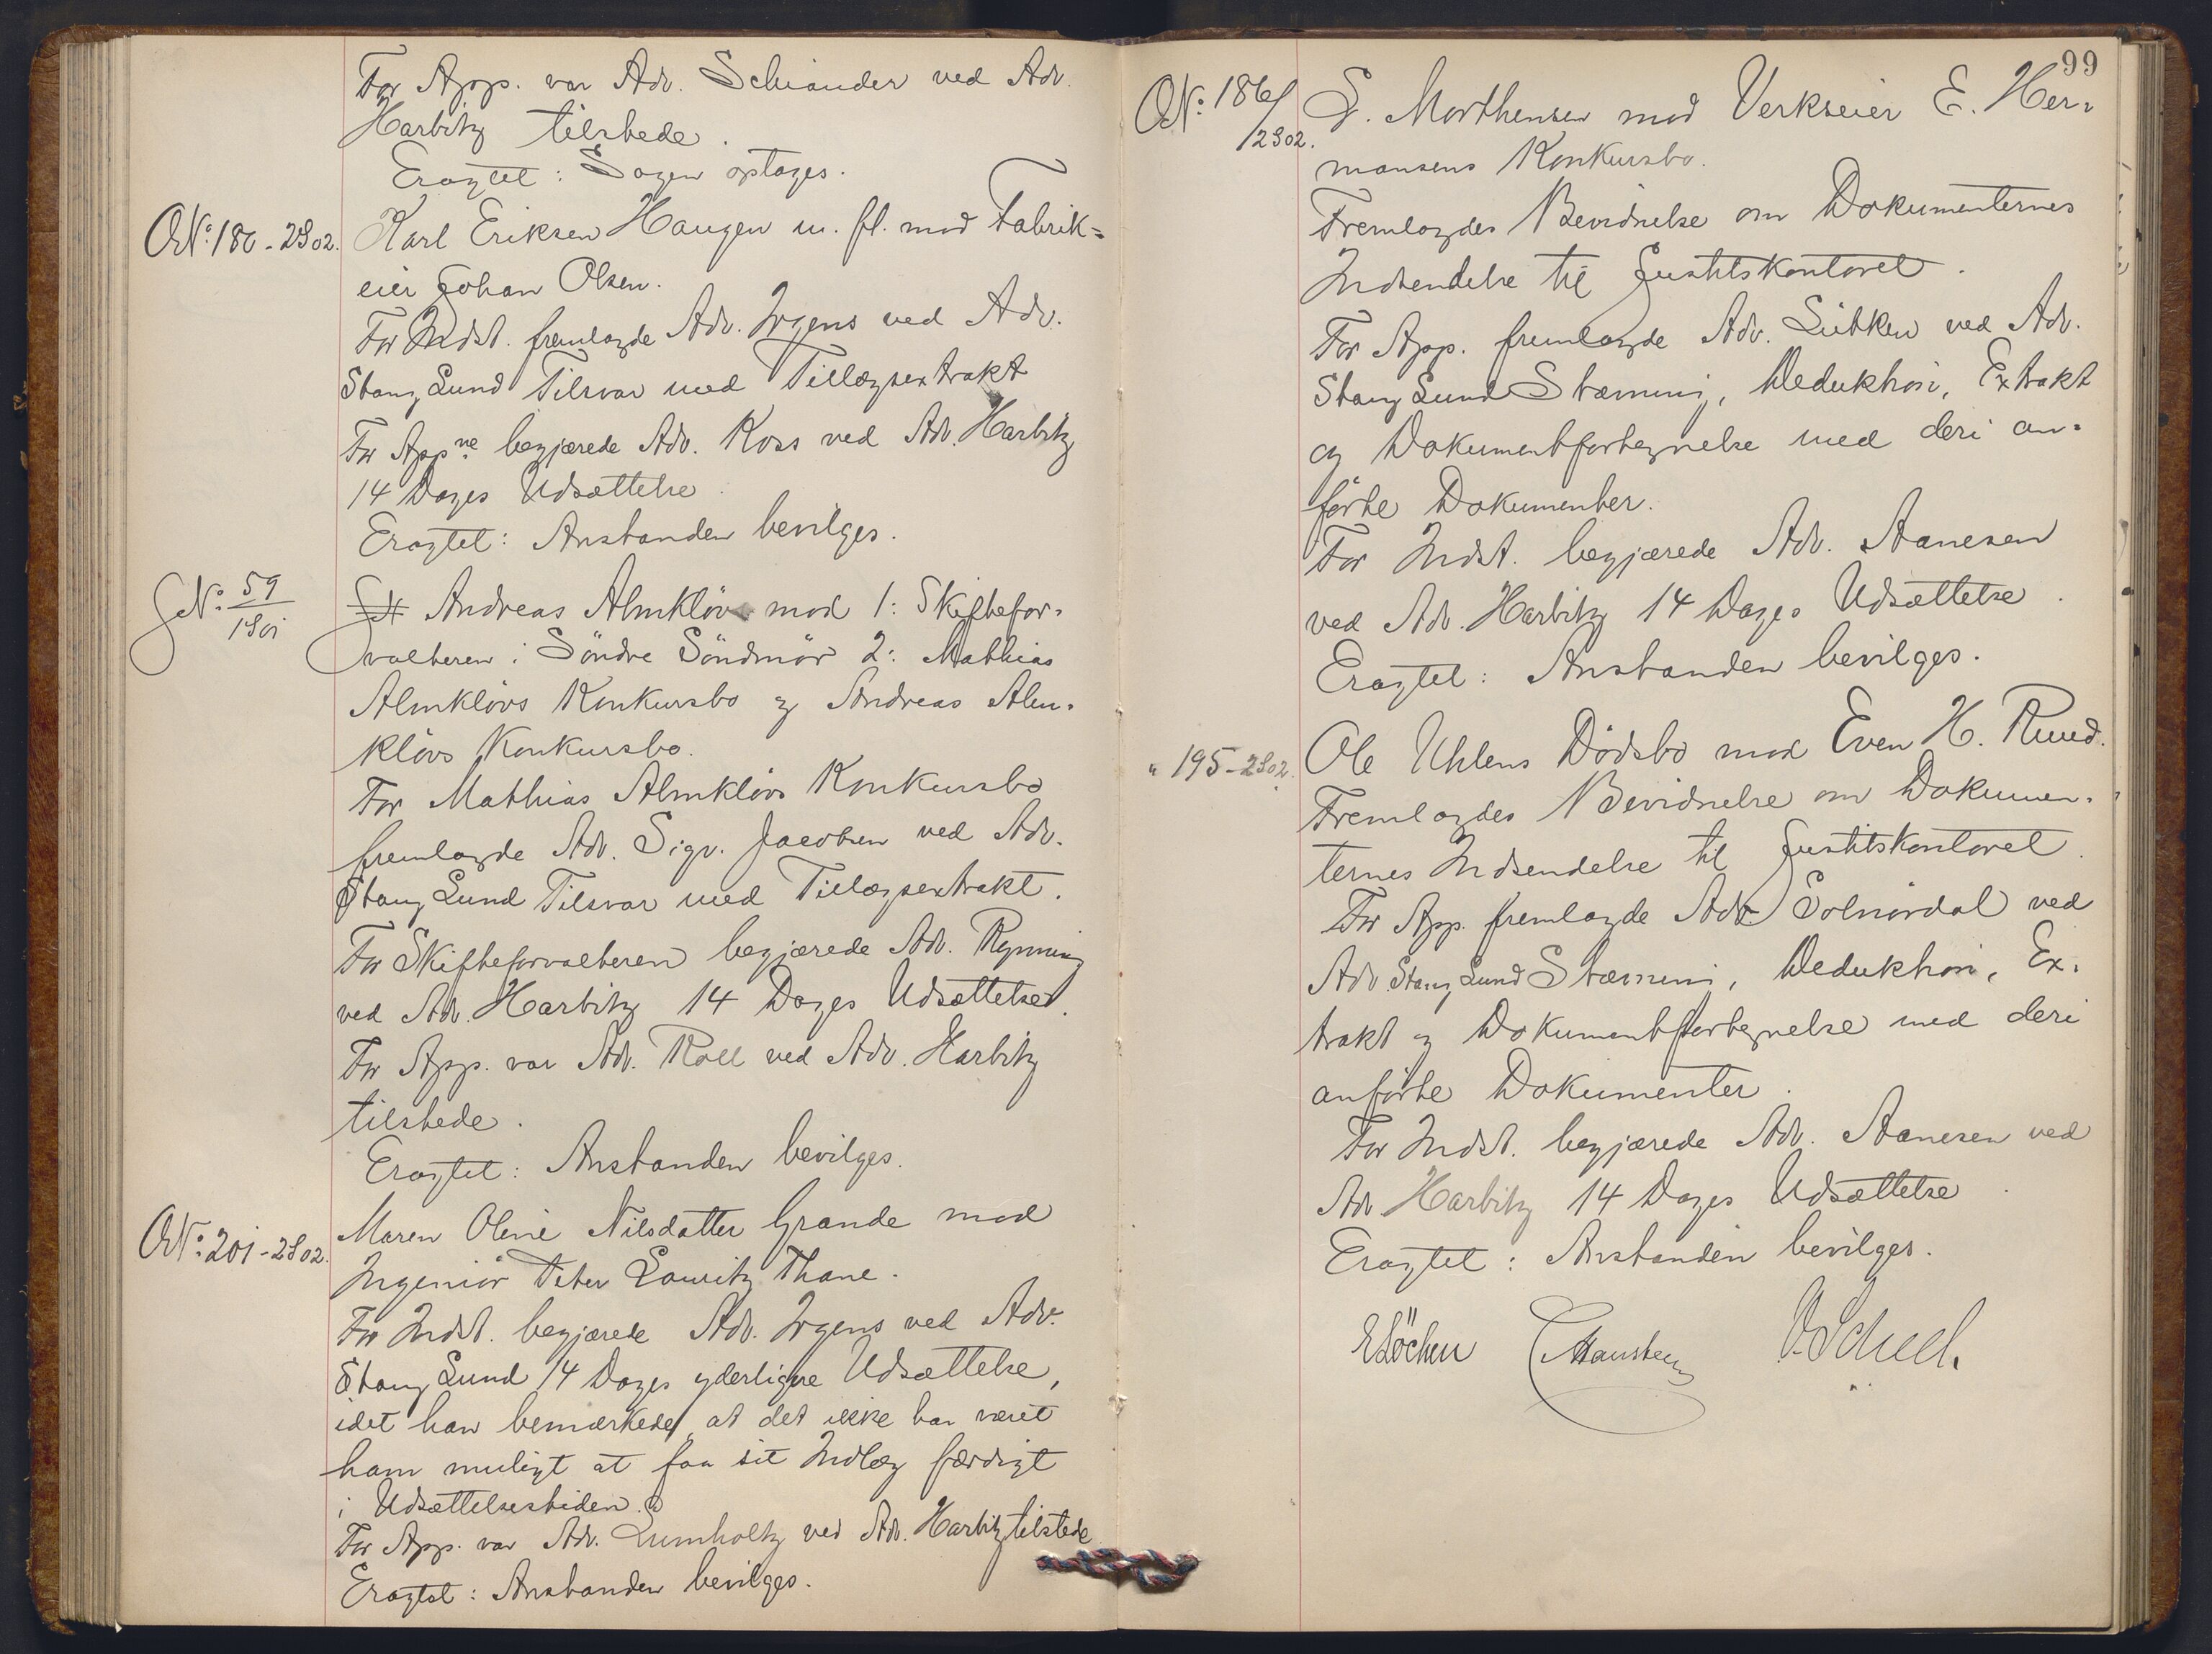 For App. var Adv. Schiander ved Adv.
Harbitz tilstede.
Eragtet: Sagen optages.
O.N.º 180 - 2S02. Karl Eriksen Haugen m. fl. mod Fabrik=
eier Johan Olsen.
For Indst. fremlagde Adv. Irgens ved Adv.
Stang Lund Tilsvar med Tillægsextrakt
For Appne begjærede Adv. Ross ved Adv. Harbitz
14 Dages Udsættelse.
Eragtet: Anstanden bevilges.
G.N.º 59/1S01 Andreas Almkløv mod 1: Skiftefor-
valteren i Söndre Söndmör 2: Mathias
Almklövs Konkursbo og Andreas Alm-
klövs Konkursbo.
For Mathias Almklövs Konkursbo
fremlagde Adv. Sigv. Jacobsen ved Adv.
Stang Lund Tilsvar med Tillægsextrakt.
For Skifteforvalteren begjærede Adv. Rynning
ved Adv. Harbitz 14 Dages Udsættelse.
For App. var Adv. Roll ved Adv. Harbitz
tilstede.
Eragtet: Anstanden bevilges.
O.N.º 201 - 2S02. Maren Oline Nilsdatter Grande mod
Ingeniör Peter Lauritz Thane.
For Indst. begjærede Adv. Irgens ved Adv.
Stang Lund 14 Dages yderligere Udsættelse,
idet han bemærkede, at det ikke har været
ham muligt at faa sit Indlæg færdigt
i Udsættelsestiden.
For App. var Adv. Lumholtz ved Adv. Harbitz tilstede
Eragtet: Anstanden bevilges.
99
O.N.º 186/2S02. S. Morthensen mod Verkseier E. Her=
mansens Konkursbo.
Fremlagdes Bevidnelse om Dokumenternes
Indsendelse til Justitskontoret.
For App. fremlagde Adv. Lütken ved Adv.
Stang Lund Stævning, Deduktion, Extrakt
og Dokumentfortegnelse med deri an=
förte Dokumenter.
For Indst. begjærede Adv. Aanesen
ved Adv. Harbitz 14 Dages Udsættelse.
Eragtet: Anstanden bevilges.
" 195 - 2S02. Ole Uhlens Dödsbo mod Even H. Ruud.
Fremlagdes Bevidnelse om Dokumen-
ternes Indsendelse til Justitskontoret.
For App. fremlagde Adv. Solnördal ved
Adv. Stang Lund Stævning, Deduktion, Ex-
trakt og Dokumentfortegnelse med deri
anförte Dokumenter.
For Indst. begjærede Adv. Aanesen ved
Adv Harbitz 14 Dages Udsættelse.
Eragtet: Anstanden bevilges.
E Löchen C Hansteen V. Scheel.